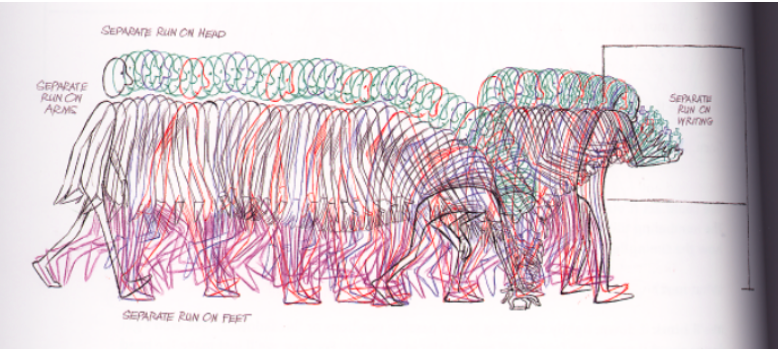 SEPARATE RUN ON HEAD
SEPARATE
RUN ON
ARMS
SEPARATE
RUN ON
WRITING
SEPARATE RUN ON FEET